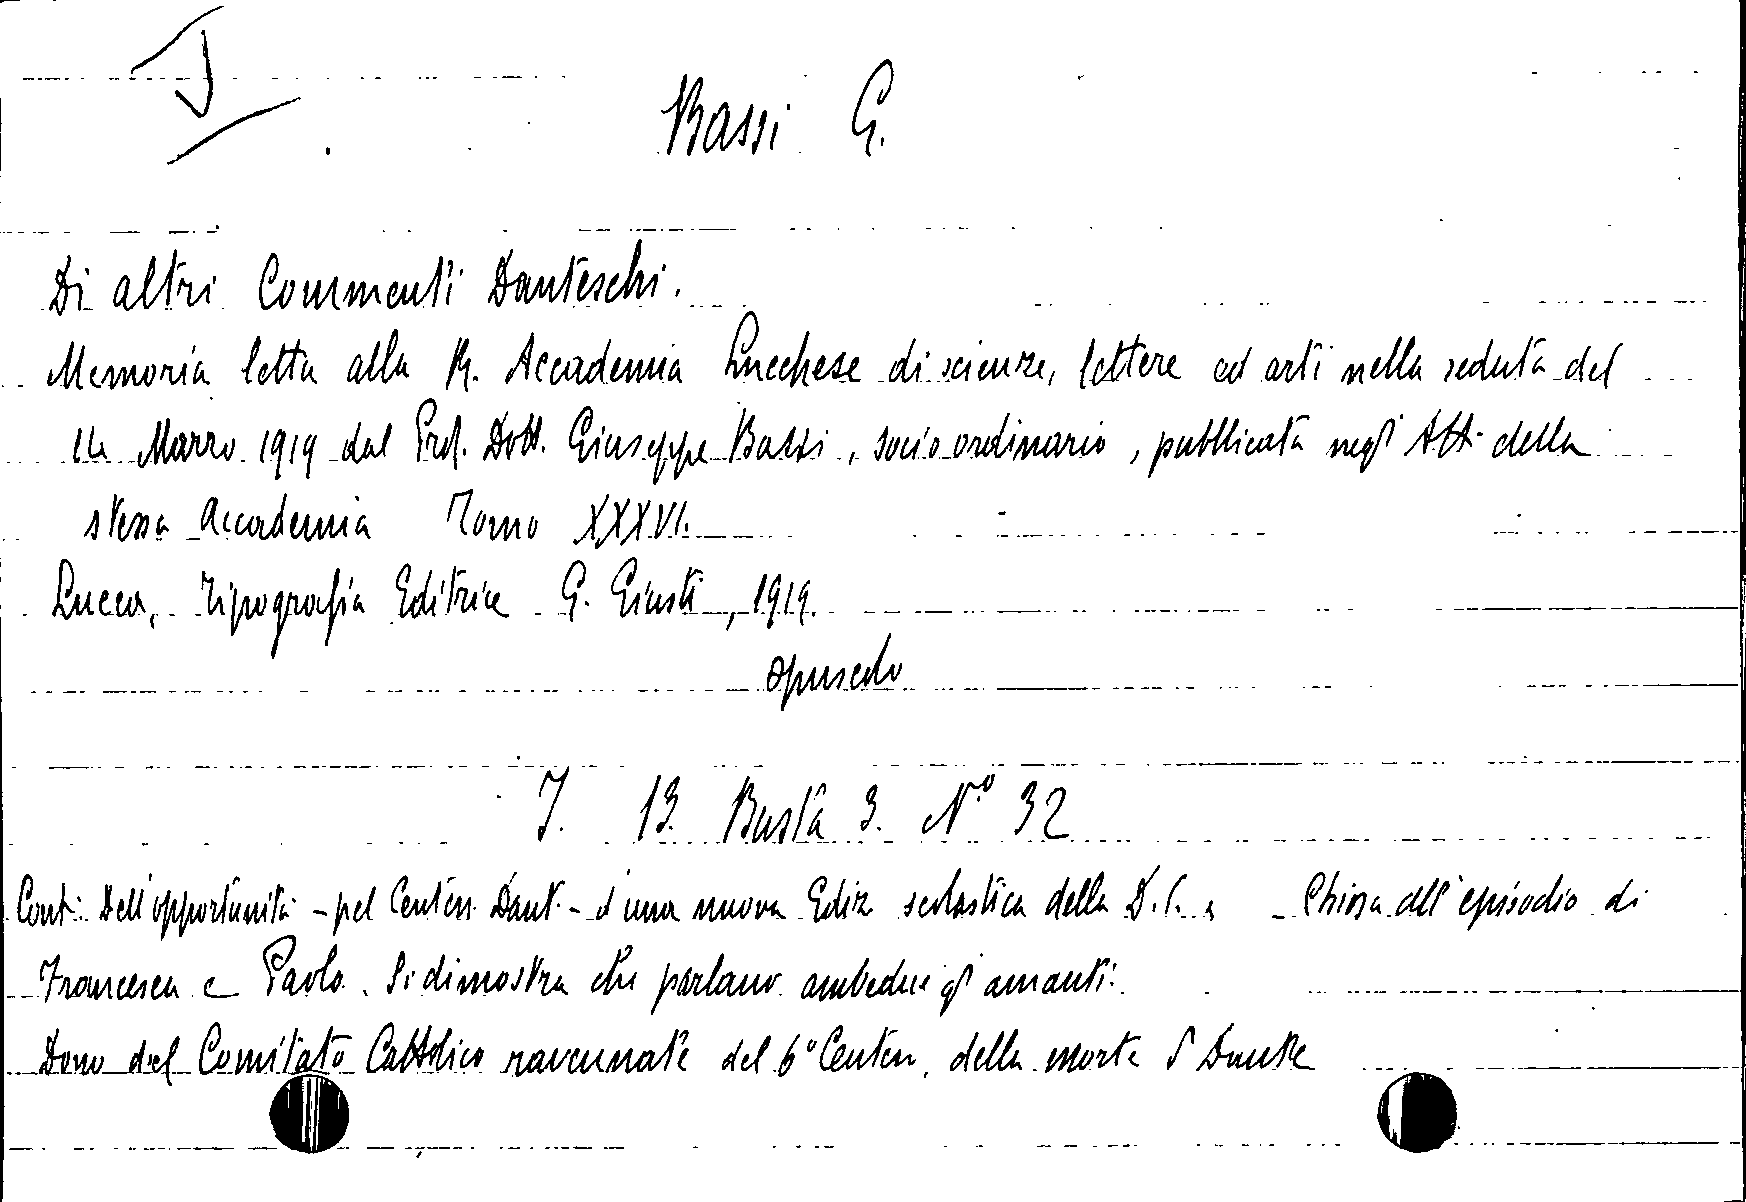 I
Bassi G.
Di altri Commenti Danteschi.
Memoria letta alla R. Accademia Lucchese di scienze, lettere ed arti nella seduta del
14 Marzo 1919 dal Prof. Dott. Giuseppe Bassi, socio ordinario, pubblicata negl' Atti della
stessa Accademia Tomo XXXVI.
Lucca, Tipografia Editrice G. Giusti, 1919.
opuscolo
I. 13. Busta 3. N.º 32
Cont: Dell'opportunità - pel Centen. Dant. - d'una nuova Ediz scolastica della D.C. - Chiosa all'episodio di
Francesca e Paolo. Si dimostra che parlano ambedue gl' amanti.
Dono del Comitato Cattolico ravennate del 6º Centen. della morte d Dante